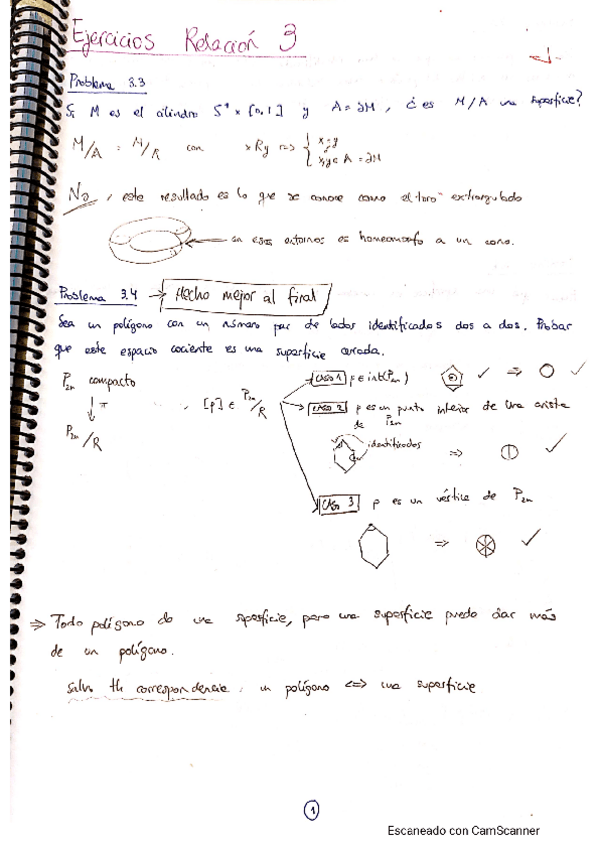 Ejercicios Relación 3
Problema 3.3
Si M es el cilindro S¹ × [0,1] y A = ∂M, ¿es M/A una superficie?
M/A = M/R con xRy ⟺ { x=y
x,y ∈ A = ∂M
No, este resultado es lo que se conoce como el "toro" extrangulado
en esos entornos es homeomorfo a un cono.
Problema 3.4 → Hecho mejor al final
Sea un polígono con un número par de lados identificados dos a dos. Probar
que este espacio cociente es una superficie cerrada.
P₂ₙ compacto
↓ π
P₂ₙ/R
, [p] ∈ P₂ₙ/R
CASO 1 p ∈ int(P₂ₙ) ✓ ⇒ ✓
CASO 2 p es un punto interior de una arista
de P₂ₙ
identificados ⇒ ✓
CASO 3 p es un vértice de P₂ₙ
⇒ ✓
⇒ Todo polígono da una superficie, pero una superficie puede dar más
de un polígono.
Salvo th correspondencia: un polígono ⟺ una superficie
1
Escaneado con CamScanner